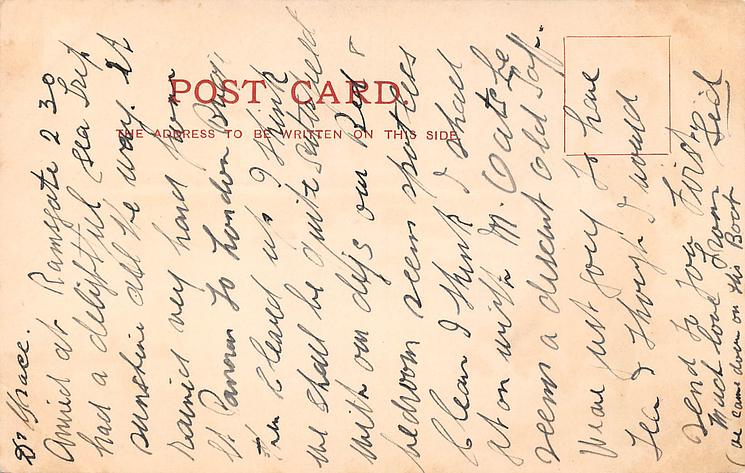 POST CARD.
THE ADDRESS TO BE WRITTEN ON THIS SIDE
Dr Grace.
Arrived at Ramsgate 2 30
had a delightful Sea Trip
sunshine all the way. It
rained very hard from
St Pancras to London Bridge
then cleared up I think
we shall be quite sattisfied
with our digs our Bed &
bedroom seems spotless
Clean I think I shall
get on with M. Oats he
seems a descent old Joff.
Wear just going to have
Tea I thought I would
send to you First
Much love From Sid
(we came down on this Boat